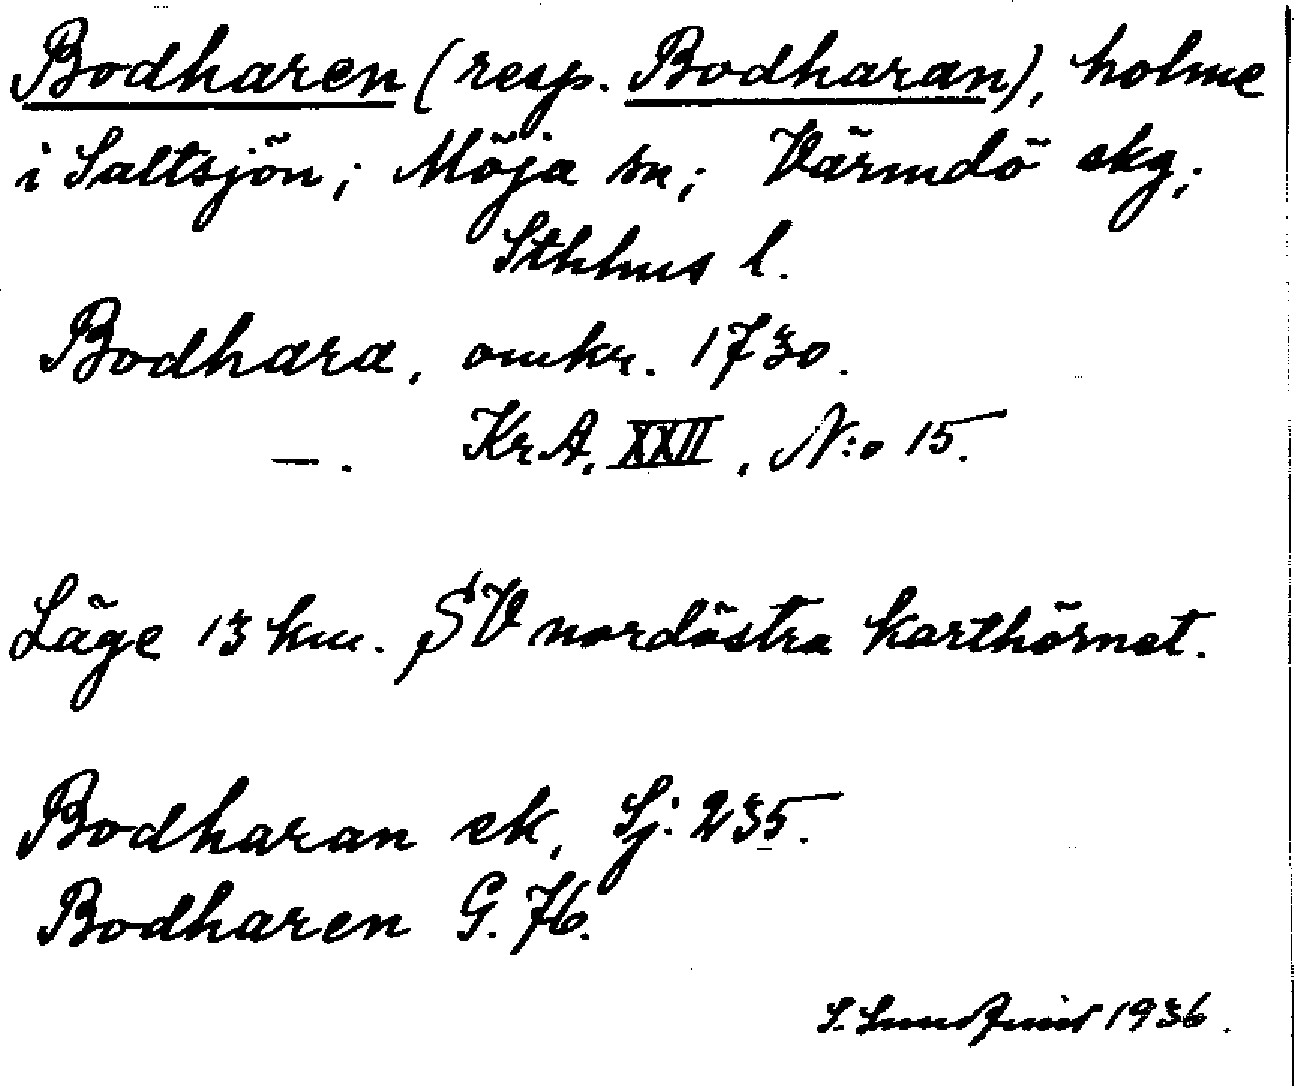 Bodharen (resp. Bodharan), holme
i Saltsjön; Möja sn; Värmdö skg;
Sthlms l.
Bodhara, omkr. 1730.
—. KrA, XXII, N:o 15.
Läge 13 km. SV nordöstra karthörnet.
Bodharan ek, Sj: 235.
Bodharen G. 76.
S. 1936.